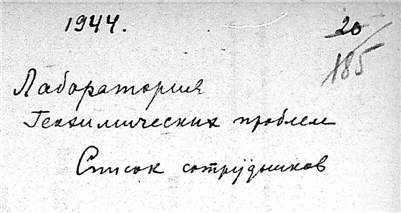 1944.
20
185
Лаборатория
Геохимических проблем
Список сотрудников